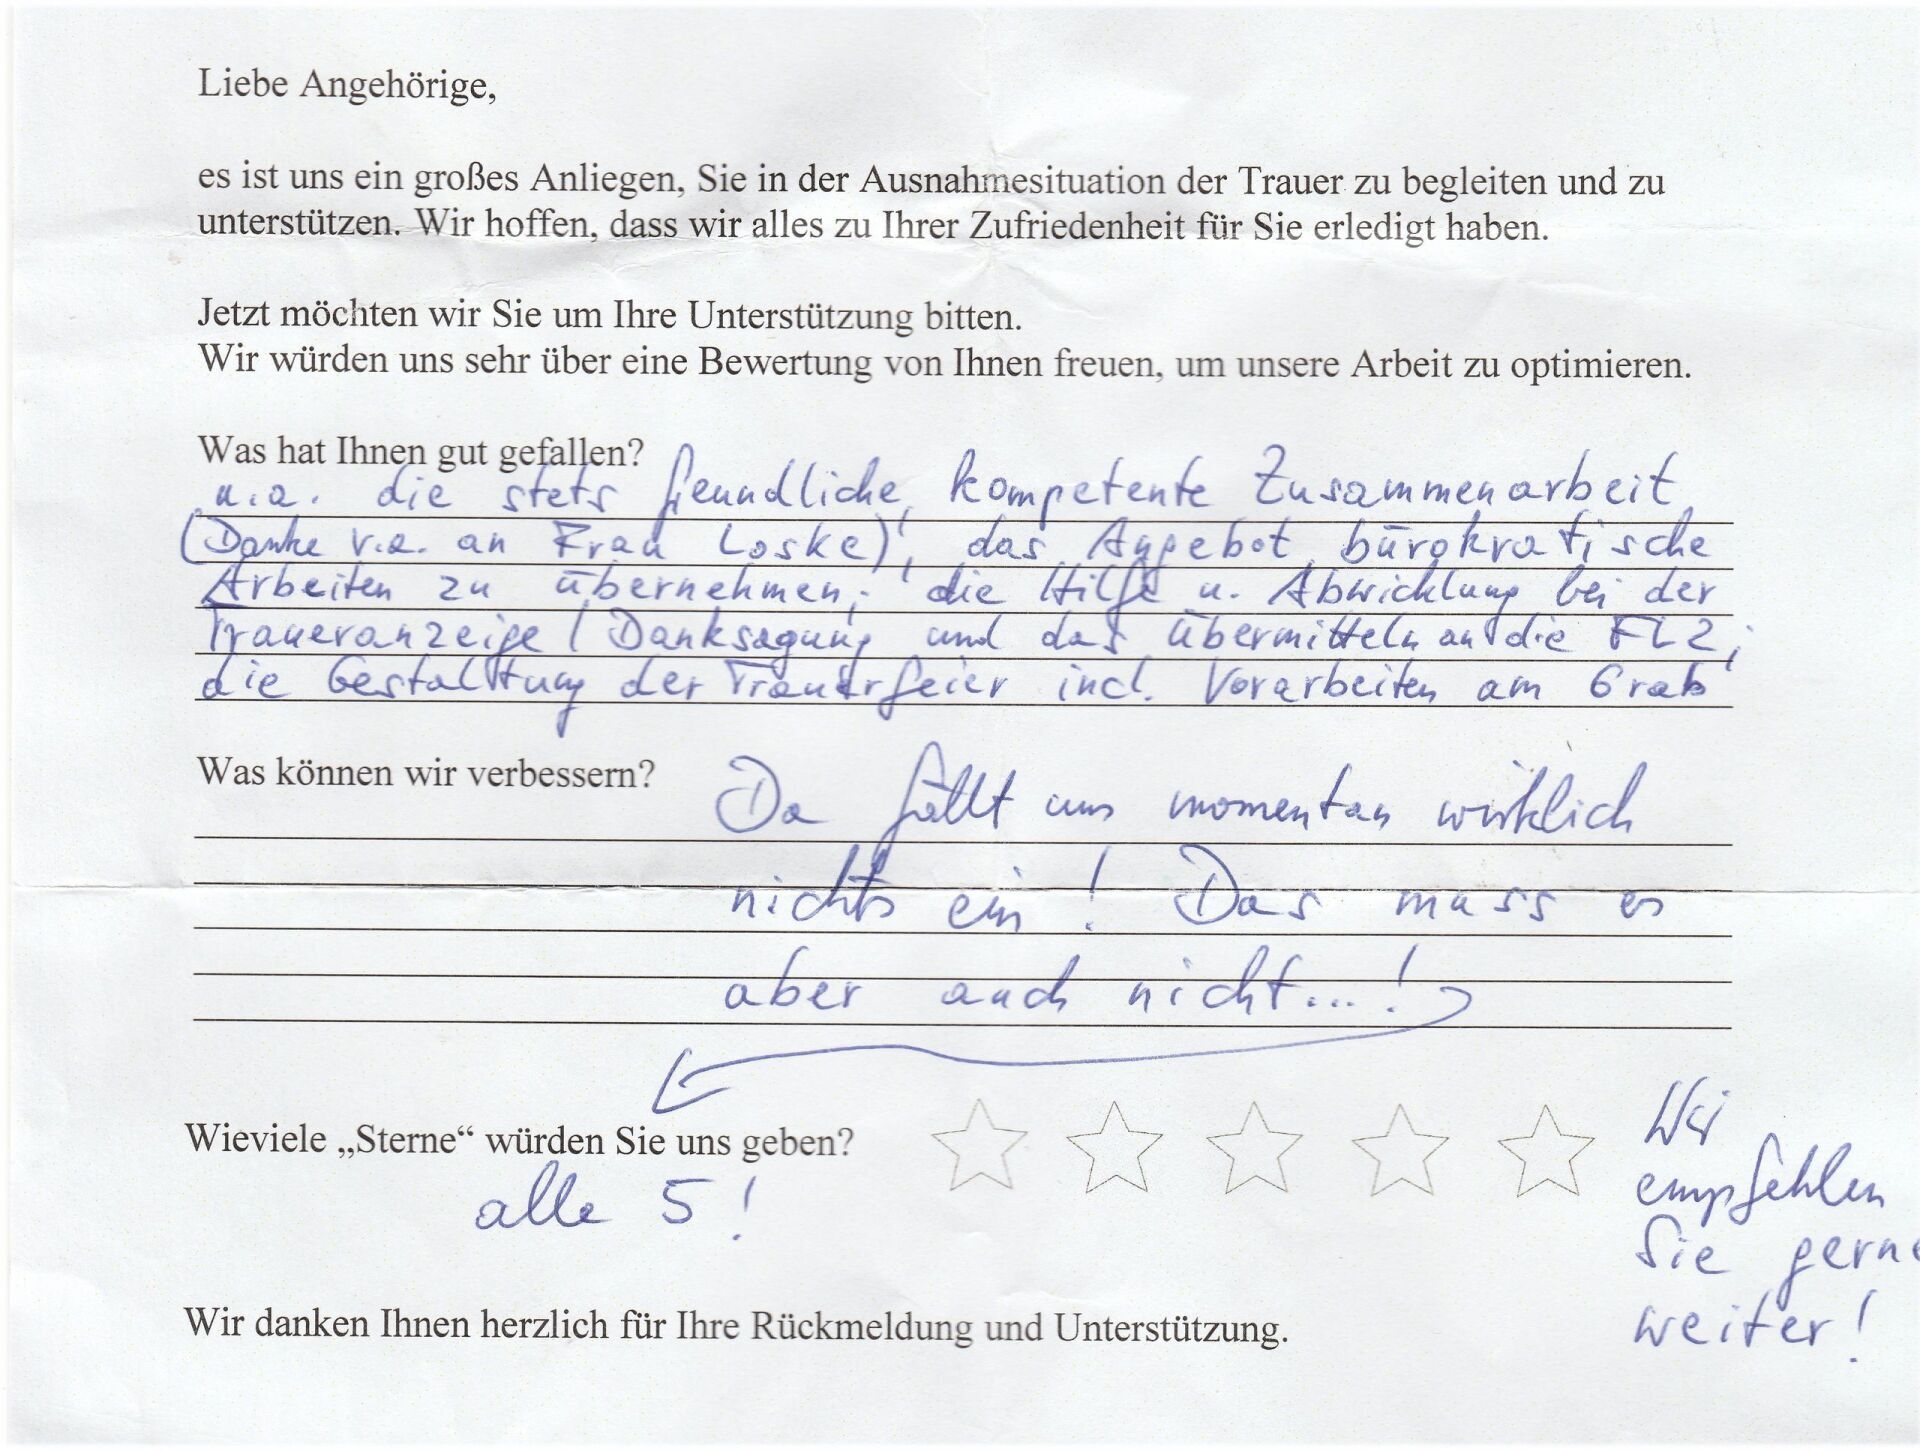 Liebe Angehörige,
es ist uns ein großes Anliegen, Sie in der Ausnahmesituation der Trauer zu begleiten und zu
unterstützen. Wir hoffen, dass wir alles zu Ihrer Zufriedenheit für Sie erledigt haben.
Jetzt möchten wir Sie um Ihre Unterstützung bitten.
Wir würden uns sehr über eine Bewertung von Ihnen freuen, um unsere Arbeit zu optimieren.
Was hat Ihnen gut gefallen?
u.a. die stets freundliche, kompetente Zusammenarbeit
(Danke v.a. an Frau Loske); das Angebot, bürokratische
Arbeiten zu übernehmen; die Hilfe u. Abwicklung bei der
Traueranzeige / Danksagung und das Übermitteln an die FLZ;
die Gestaltung der Trauerfeier incl. Vorarbeiten am Grab
Was können wir verbessern?
Da fällt uns momentan wirklich
nichts ein! Das muss es
aber auch nicht...!
Wieviele „Sterne“ würden Sie uns geben?
alle 5!
Wir
empfehlen
Sie gerne
weiter!
Wir danken Ihnen herzlich für Ihre Rückmeldung und Unterstützung.